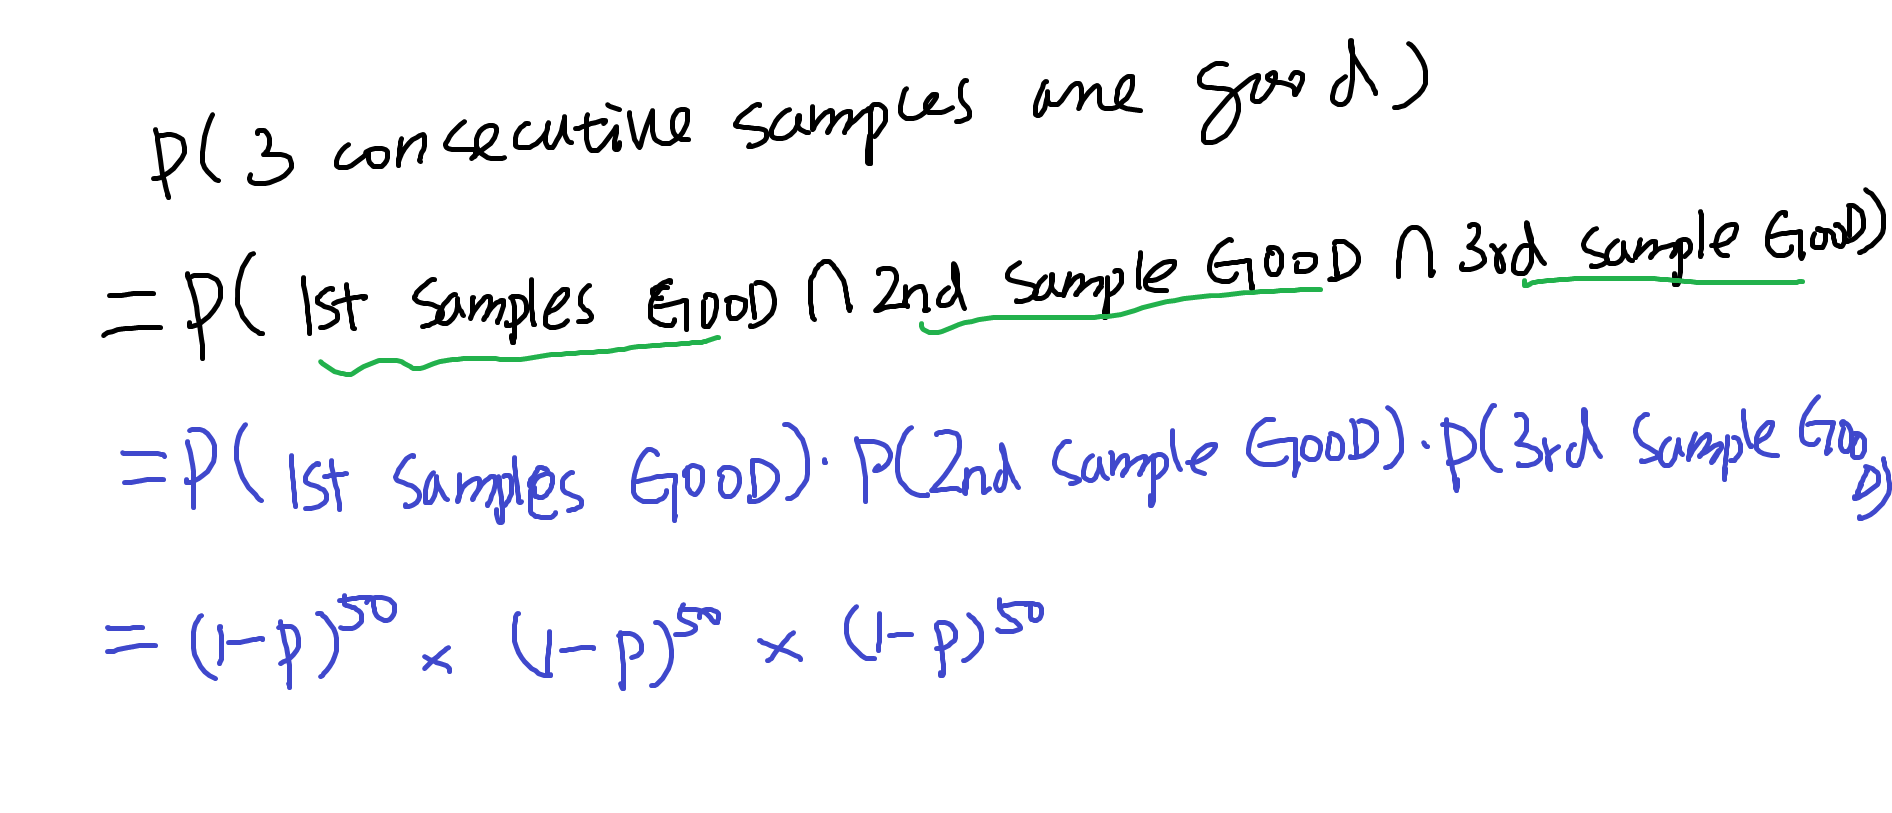 P( 3 consecutive samples are good )
= P( 1st Samples GOOD ∩ 2nd Sample GOOD ∩ 3rd Sample GOOD)
= P( 1st Samples GOOD) · P(2nd Sample GOOD) · P(3rd Sample GOOD)
= (1-p)^50 × (1-p)^50 × (1-p)^50